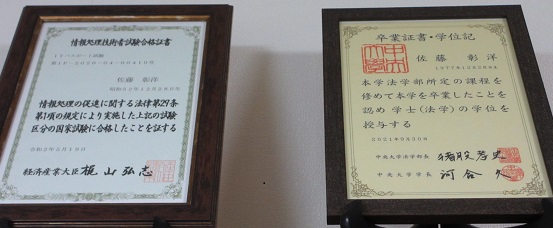 情報処理技術者試験合格証書
ITパスポート試験
佐藤 彰洋
情報処理の促進に関する法律第29条
第1項の規定により実施した上記の試験
区分の国家試験に合格したことを証する
経済産業大臣 梶山弘志
卒業証書・学位記
佐藤 彰洋
本学法学部所定の課程を
修めて本学を卒業したことを
認め 学士(法学)の学位を
授与する
中央大学法学部長 猪股孝史
中央大学学長 河合 久